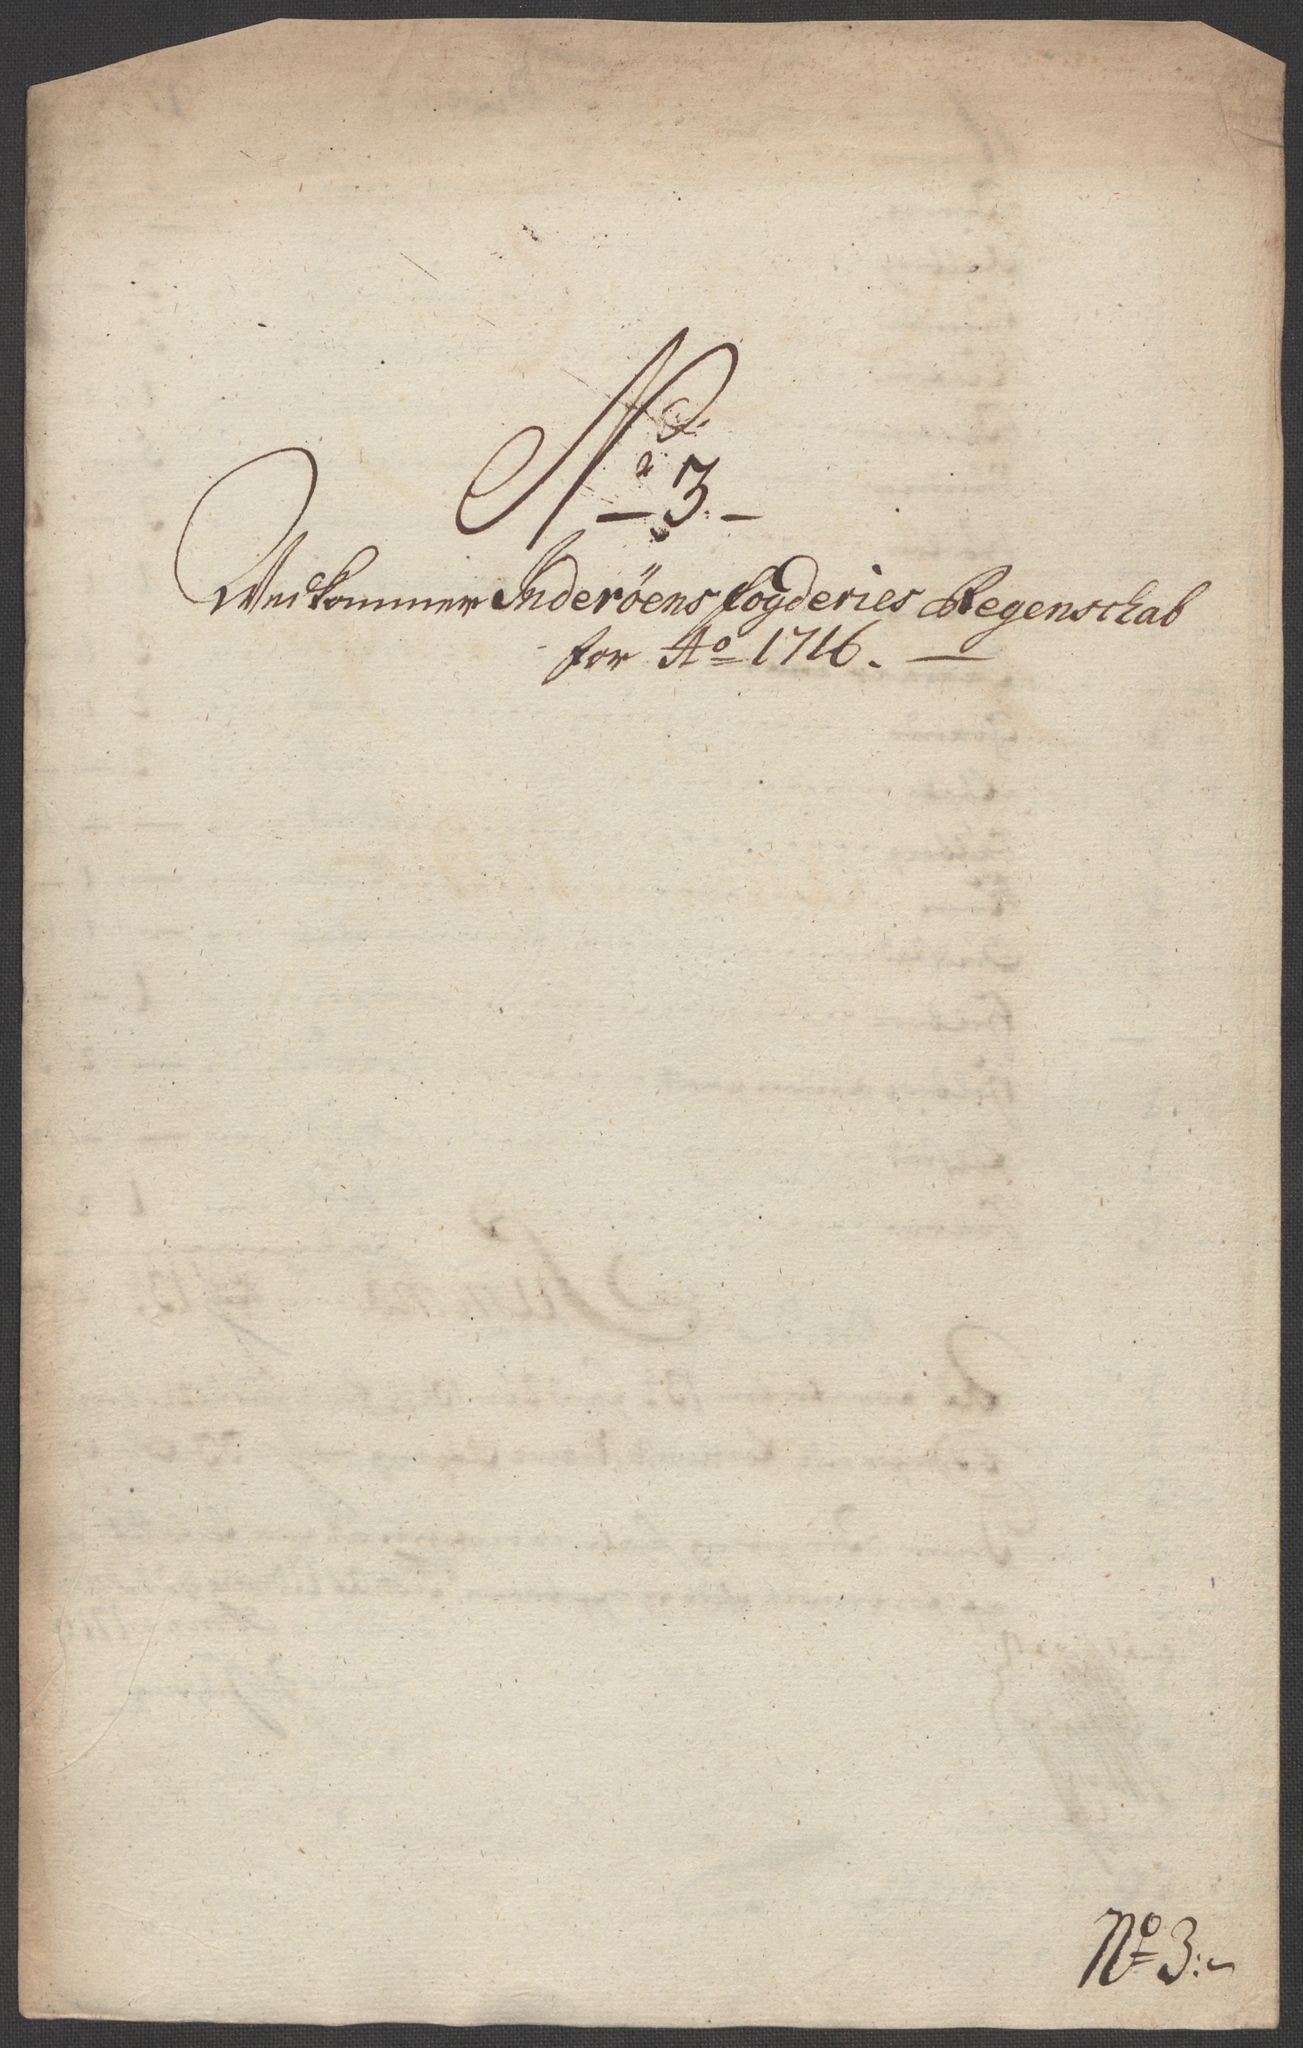 No 3.
Wedkommer Inderöens fogderies Regenschab
for Ao 1716.
No 3: